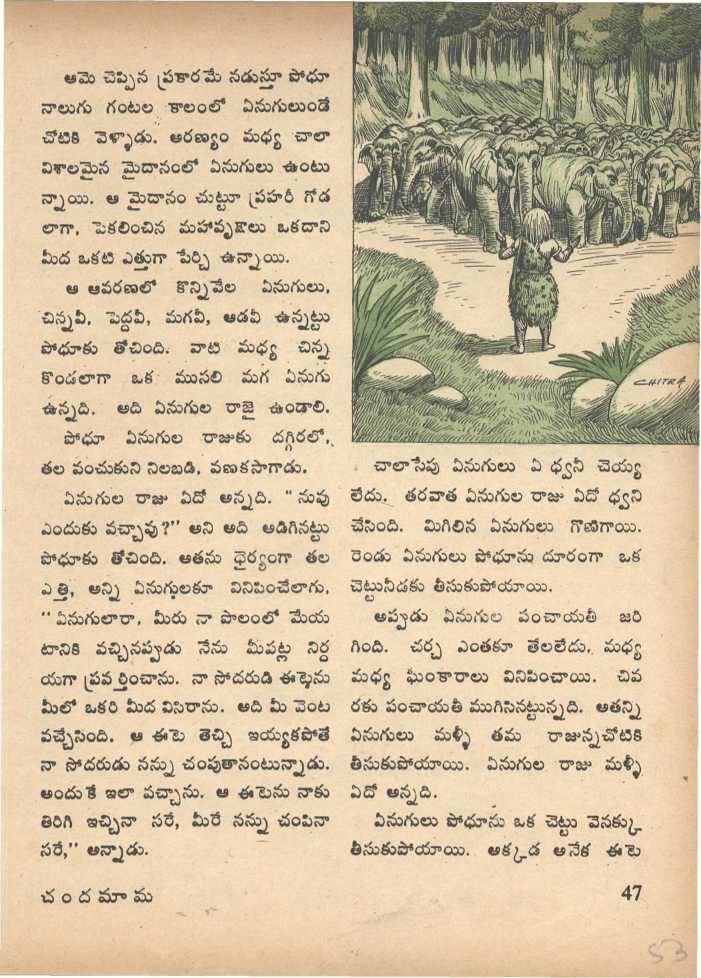 ఆమె చెప్పిన ప్రకారమే నడుస్తూ పోధూ
నాలుగు గంటల కాలంలో ఏనుగులుండే
చోటికి వెళ్ళాడు. అరణ్యం మధ్య చాలా
విశాలమైన మైదానంలో ఏనుగులు ఉంటు
న్నాయి. ఆ మైదానం చుట్టూ ప్రహరీ గోడ
లాగా, పెకలించిన మహావృక్షాలు ఒకదాని
మీద ఒకటి ఎత్తుగా పేర్చి ఉన్నాయి.
ఆ ఆవరణలో కొన్నివేల ఏనుగులు,
చిన్నవీ, పెద్దవీ, మగవీ, ఆడవీ ఉన్నట్టు
పోధూకు తోచింది. వాటి మధ్య చిన్న
కొండలాగా ఒక ముసలి మగ ఏనుగు
ఉన్నది. అది ఏనుగుల రాజై ఉండాలి.
పోధూ ఏనుగుల రాజుకు దగ్గిరలో,
తల వంచుకుని నిలబడి, వణకసాగాడు.
ఏనుగుల రాజు ఏదో అన్నది. "నువు
ఎందుకు వచ్చావు?" అని అది అడిగినట్టు
పోధూకు తోచింది. అతను ధైర్యంగా తల
ఎత్తి, అన్ని ఏనుగులకూ వినిపించేలాగు,
"ఏనుగులారా, మీరు నా పొలంలో మేయ
టానికి వచ్చినప్పుడు నేను మీపట్ల నిర్ద
యగా ప్రవర్తించాను. నా సోదరుడి ఈటెను
మీలో ఒకరి మీద విసిరాను. అది మీ వెంట
వచ్చేసింది. ఆ ఈటె తెచ్చి ఇయ్యకపోతే
నా సోదరుడు నన్ను చంపుతానంటున్నాడు.
అందుకే ఇలా వచ్చాను. ఆ ఈటెను నాకు
తిరిగి ఇచ్చినా సరే, మీరే నన్ను చంపినా
సరే," అన్నాడు.
CHITRA
చాలాసేపు ఏనుగులు ఏ ధ్వనీ చెయ్య
లేదు. తరవాత ఏనుగుల రాజు ఏదో ధ్వని
చేసింది. మిగిలిన ఏనుగులు గొణిగాయి.
రెండు ఏనుగులు పోధూను దూరంగా ఒక
చెట్టునీడకు తీసుకుపోయాయి.
అప్పుడు ఏనుగుల పంచాయతీ జరి
గింది. చర్చ ఎంతకూ తేలలేదు. మధ్య
మధ్య ఘీంకారాలు వినిపించాయి. చివ
రకు పంచాయతీ ముగిసినట్టున్నది. అతన్ని
ఏనుగులు మళ్ళీ తమ రాజున్నచోటికి
తీసుకుపోయాయి. ఏనుగుల రాజు మళ్ళీ
ఏదో అన్నది.
ఏనుగులు పోధూను ఒక చెట్టు వెనక్కు
తీసుకుపోయాయి. అక్కడ అనేక ఈటె
చందమామ
47
53